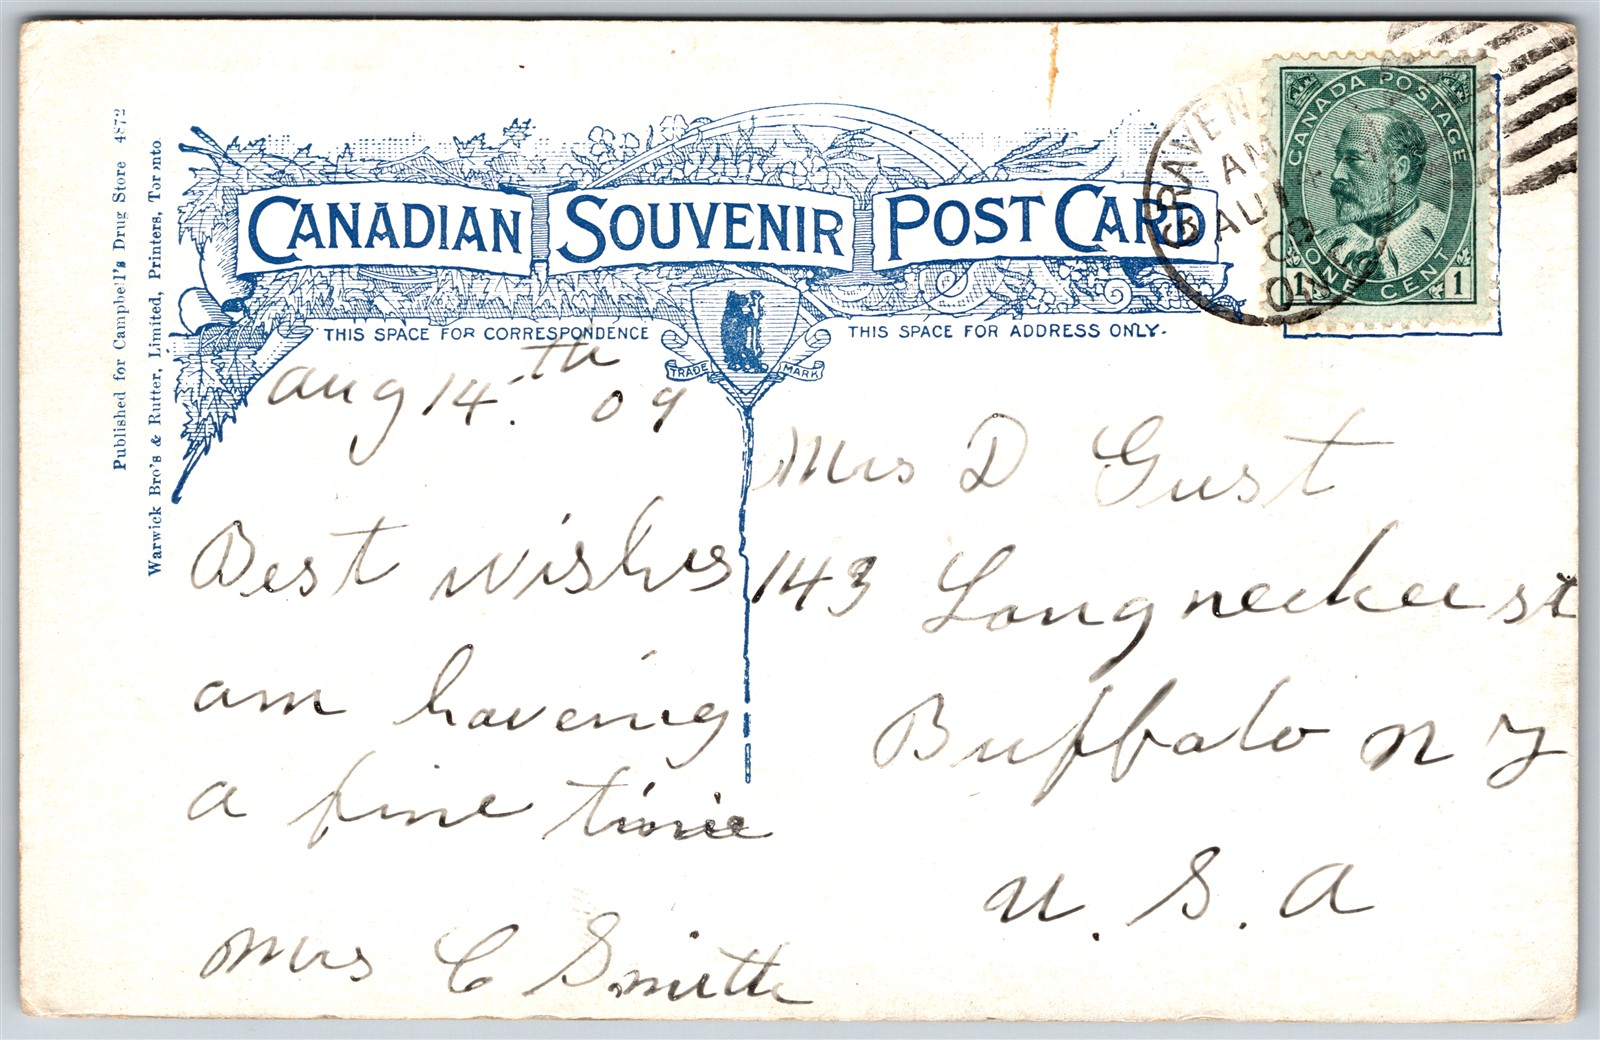 Published for Campbell's Drug Store 4872
Warwick Bro's & Rutter, Limited, Printers, Toronto.
CANADIAN SOUVENIR POST CARD
THIS SPACE FOR CORRESPONDENCE
THIS SPACE FOR ADDRESS ONLY.
TRADE MARK
CANADA POSTAGE
1 ONE CENT 1
AM
AU
09
ON
aug 14.th 09
Best wishes
am haveing
a fine time
Mrs C Smith
Mrs D Gust
143 Longnecker st
Buffalo n y
U. S. A